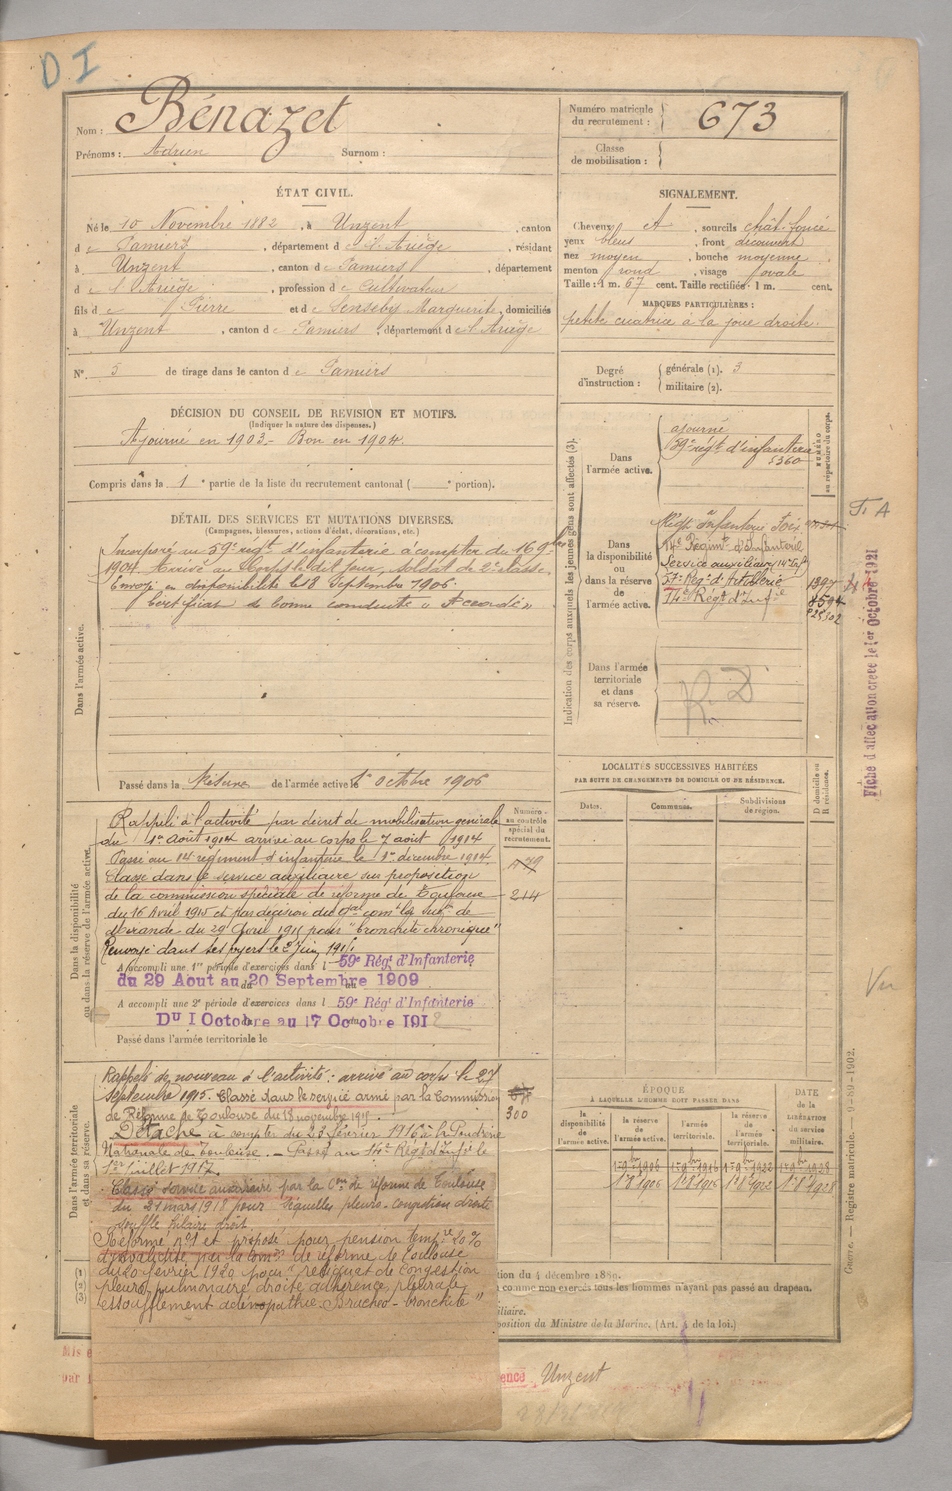 D I
Nom : Bénazet
Prénoms : Adrien Surnom :
Numéro matricule du recrutement : 673
Classe de mobilisation :
ÉTAT CIVIL.
Né le 10 Novembre 1882, à Unzent, canton
de Pamiers, département de l'Ariège, résidant
à Unzent, canton de Pamiers, département
de l'Ariège, profession de Cultivateur
fils de Pierre et de Senseby Marguerite, domiciliés
à Unzent, canton de Pamiers, département de l'Ariège
N° 5 de tirage dans le canton de Pamiers
SIGNALEMENT.
Cheveux ct, sourcils chât. foncé
yeux bleus, front découvert
nez moyen, bouche moyenne
menton rond, visage ovale
Taille : 1 m. 67 cent. Taille rectifiée : 1 m. cent.
MARQUES PARTICULIÈRES :
petite cicatrice à la joue droite.
Degré d'instruction : générale (1). 3
militaire (2).
DÉCISION DU CONSEIL DE REVISION ET MOTIFS.
(Indiquer la nature des dispenses.)
Ajourné en 1903 - Bon en 1904.
Compris dans la 1e partie de la liste du recrutement cantonal ( e portion).
DÉTAIL DES SERVICES ET MUTATIONS DIVERSES.
(Campagnes, blessures, actions d'éclat, décorations, etc.)
Dans l'armée active.
Incorporé au 59e régt d'infanterie à compter du 16 9bre
1904. Arrivé au Corps le dit jour, soldat de 2e classe.
Envoyé en disponibilité le 18 Septembre 1906.
Certificat de bonne conduite « Accordé »
Passé dans la Réserve de l'armée active le 1er octobre 1906
Indication des corps auxquels les jeunes gens sont affectés (3).
NUMÉRO au répertoire du corps.
Dans l'armée active.
ajourné
59e régt d'infanterie
5360
Dans la disponibilité ou dans la réserve de l'armée active.
Régt Infanterie Foix
14e Régimt d'Infanterie
Service auxiliaire 14e Infie
57e Rég. d'Artillerie 1397
14e Régt d'Infie 8594
Dans l'armée territoriale et dans sa réserve.
R. D
F. A
Fiche d'affectation créée le 1er Octobre 1921
LOCALITÉS SUCCESSIVES HABITÉES
PAR SUITE DE CHANGEMENTS DE DOMICILE OU DE RÉSIDENCE.
Dates. Communes. Subdivisions de région.
D domicile ou R résidence.
Dans la disponibilité ou dans la réserve de l'armée active.
Numéro au contrôle spécial du recrutement.
Rappelé à l'activité par décret de mobilisation générale
du 1er Août 1914 arrivé au corps le 7 août 1914
Passé au 14e régiment d'infanterie le 1er décembre 1914.
Classé dans le service auxiliaire sur proposition
de la commission spéciale de réforme de Toulouse 214
du 16 Avril 1915 et par décision du Gal comt la Subon de
Mirande du 29 Avril 1915 pour "bronchite chronique"
Renvoyé dans ses foyers le 2 Juin 1915.
A accompli une 1re période d'exercices dans l 59e Régt d'Infanterie
du 29 Aout au 20 Septembre 1909
A accompli une 2e période d'exercices dans l 59e Régt d'Infanterie
DU 1 Octobre au 17 Octobre 1912
Passé dans l'armée territoriale le
Vu
Dans l'armée territoriale et dans sa réserve.
Rappelé de nouveau à l'activité ; arrivé au corps le 27
septembre 1915. Classé dans le service armé par la Commission
de Réforme de Toulouse du 18 novembre 1915. 300
Détaché à compter du 23 février 1916 à la Poudrerie
Nationale de Toulouse. — Passé au 14e Régt d'Infie le
1er Juillet 1917.
Classé service auxiliaire par la Con de réforme de Toulouse
du 21 mars 1918 pour séquelles pleuro-congestion droite
souffle hilaire droit
Réformé n° 1 et proposé pour pension tempre 20 %
d'invalidité par la comon de réforme de Toulouse
du 20 février 1920 pour "reliquat de congestion
pleuro pulmonaire droite adhérence pleurale
essoufflement adénopathie Trachéo-bronchite"
ÉPOQUE
À LAQUELLE L'HOMME DOIT PASSER DANS
la disponibilité de l'armée active.
la réserve de l'armée active.
l'armée territoriale.
la réserve de l'armée territoriale.
DATE de la LIBÉRATION du service militaire.
1er 9bre 1906 1er 9bre 1916 1er 9bre 1922 1er 9bre 1928
1er 8bre 1906 1er 8bre 1916 1er 8bre 1922 1er 8bre 1928
tion du 4 décembre 1889.
comme non exercés tous les hommes n'ayant pas passé au drapeau.
iliaire.
position du Ministre de la Marine. (Art. 4 de la loi.)
Guerre. — Registre matricule. — 9-89-1902.
Mis e
par
ence Unzent